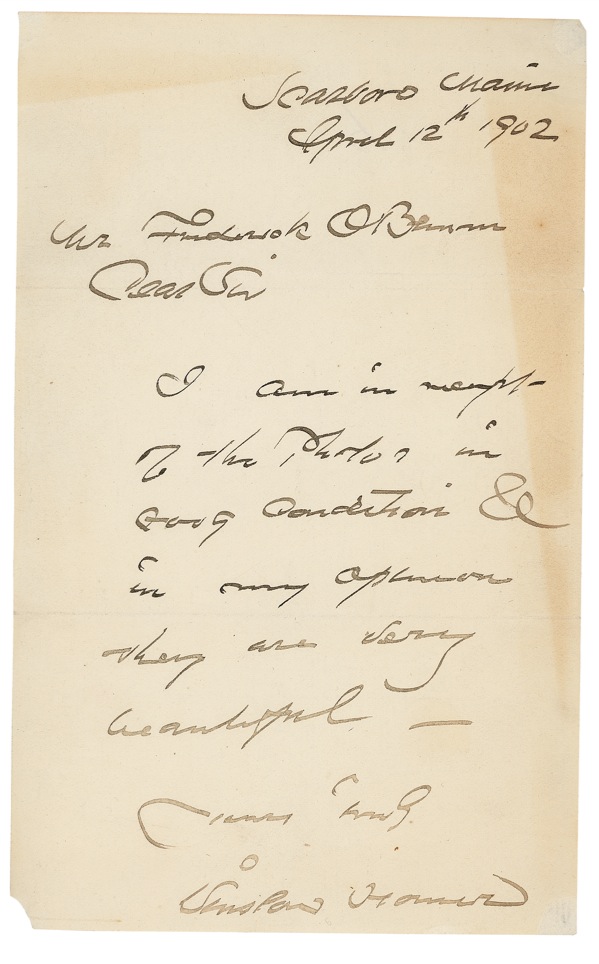 Scarboro Maine
April 12th 1902
Mr Frederick
Dear Sir
I am in receipt
of the Photos in
good condition &
in my opinion
they are very
beautiful —
Yours truly
Winslow Homer